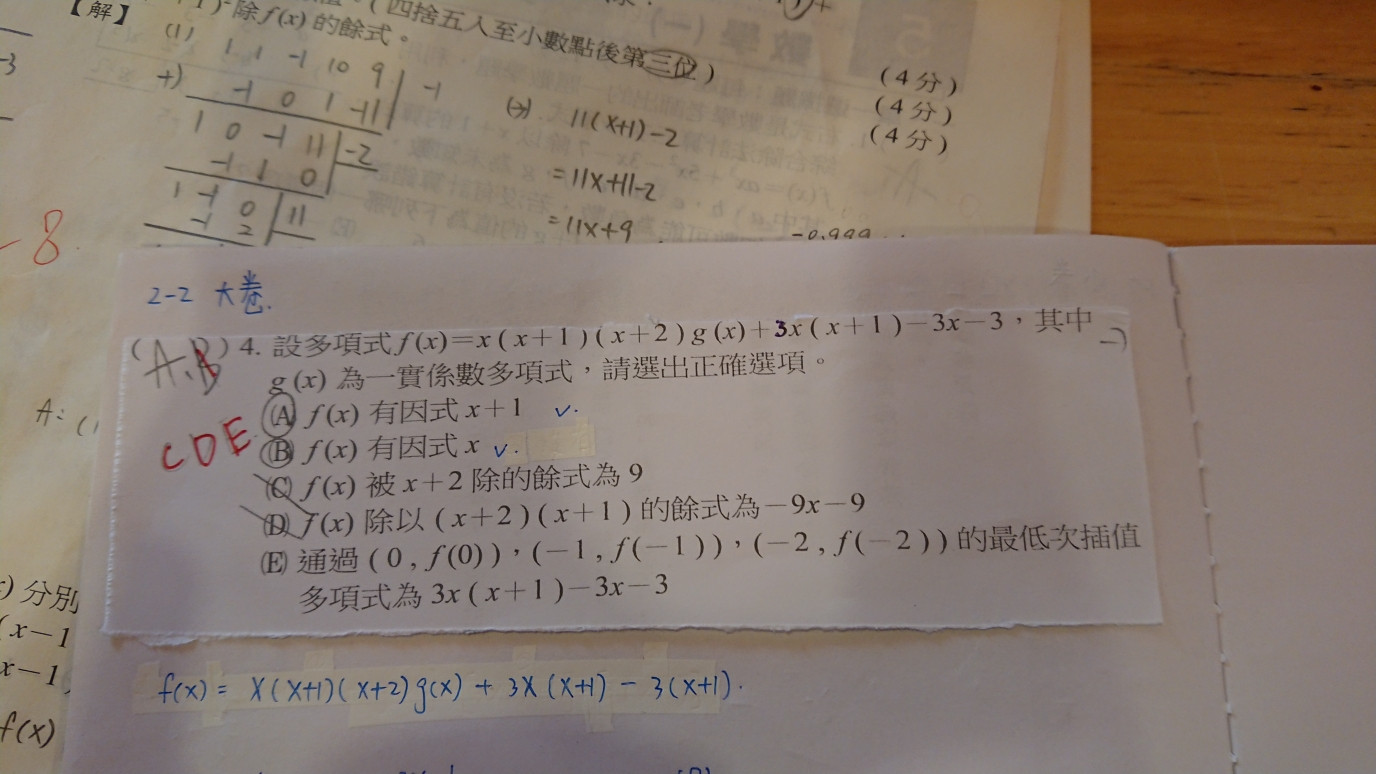 【解】
除f(x)的餘式。
(四捨五入至小數點後第三位)
(4分)
(4分)
(4分)
(1) 1 1 -1 10 9 | -1
+) -1 0 1 -11
1 0 -1 11 | -2
-1 1 0
1 -1 0 | 11
-1 2
11(x+1)-2
=11x+11-2
=11x+9
-0.999
-3
-8
2-2 大卷.
(A.B) 4. 設多項式f(x)=x(x+1)(x+2)g(x)+3x(x+1)-3x-3，其中
g(x)為一實係數多項式，請選出正確選項。
(A) f(x)有因式x+1 v.
(B) f(x)有因式x v.
CDE
(C) f(x)被x+2除的餘式為9
(D) f(x)除以(x+2)(x+1)的餘式為-9x-9
(E) 通過(0,f(0))，(-1,f(-1))，(-2,f(-2))的最低次插值
多項式為3x(x+1)-3x-3
A:
分別
(x-1
x-1
f(x)
f(x) = x(x+1)(x+2)g(x) + 3x(x+1) - 3(x+1).